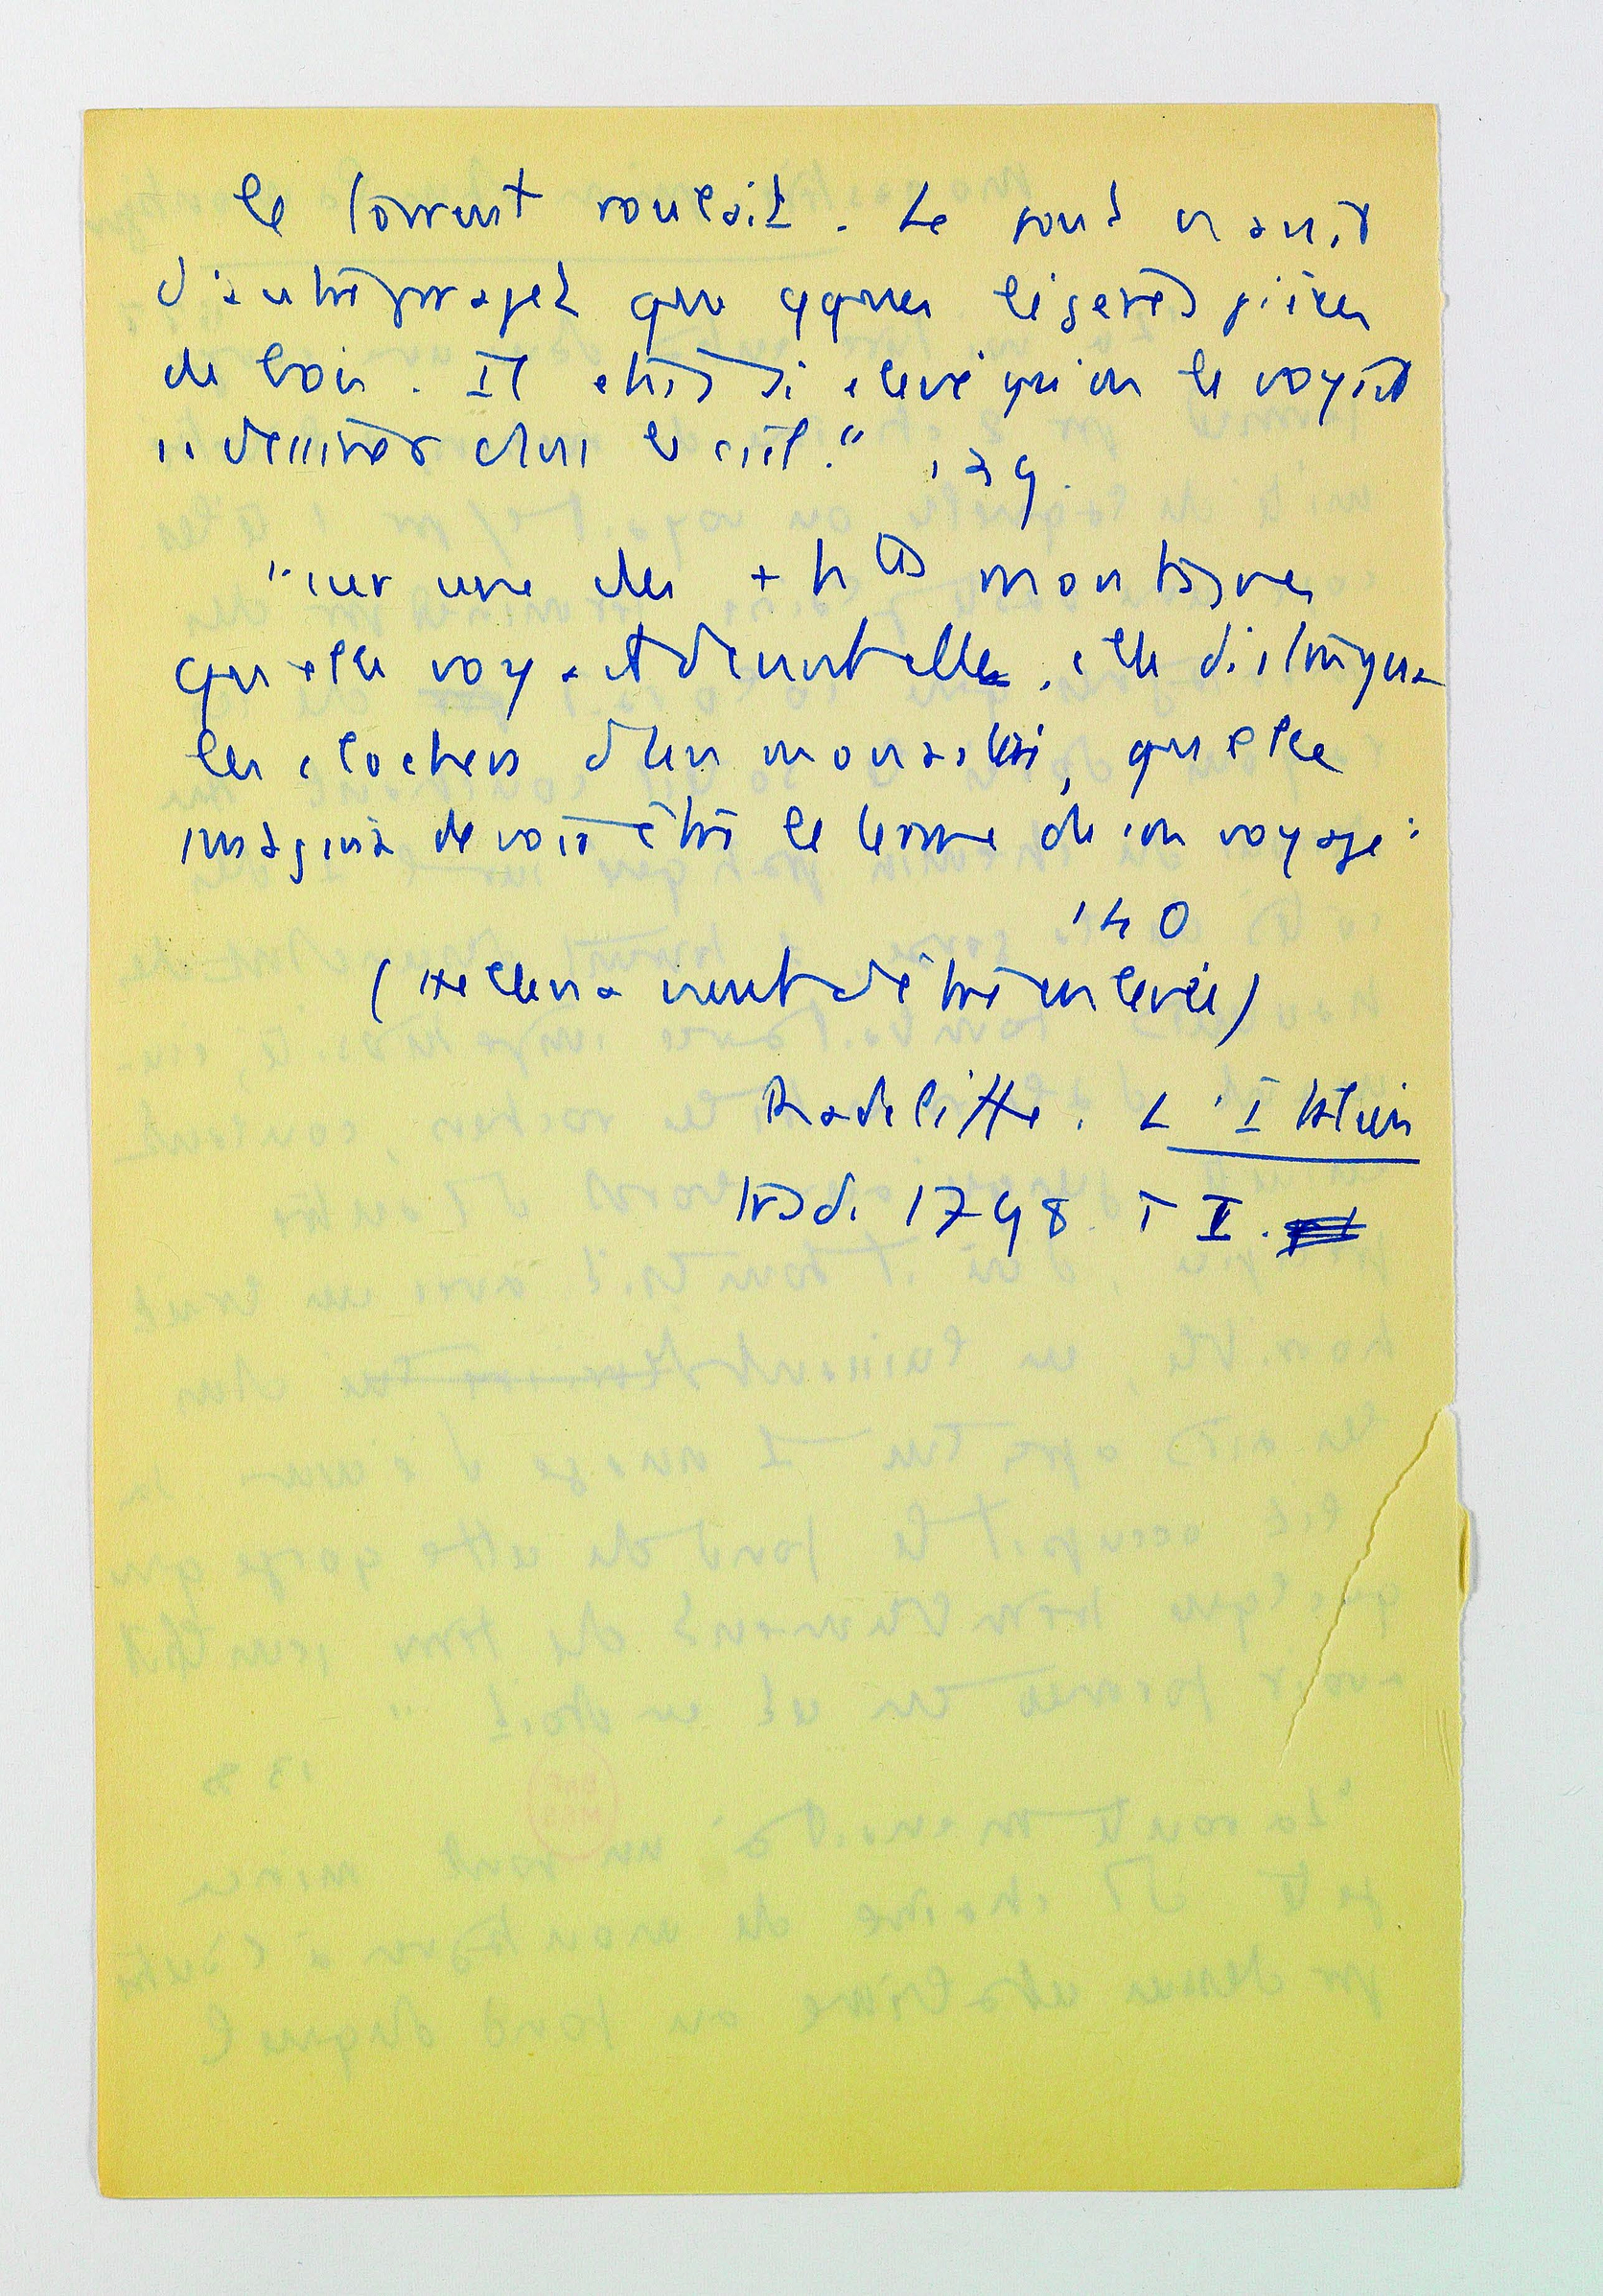 le torrent roulait. Le pont n'avait
d'autres parapets que qques légères pièces
de bois. Il était si élevé qu'on le voyait
se dessiner dans le ciel." 139.
"sur une des + htes montagnes
qu'elle voyait devant elle, elle distingua
les clochers d'un monastère, qu'elle
imagina devoir être le terme de son voyage"
140
(Ellena vient d'être enlevée)
Radcliffe. L'Italien
trad. 1798 T I.